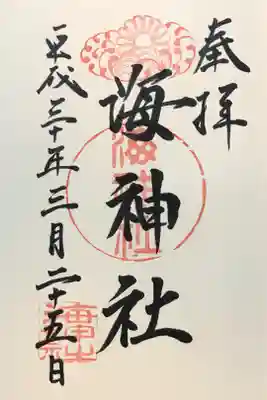 奉拝
海神社
平成三十年三月二十五日